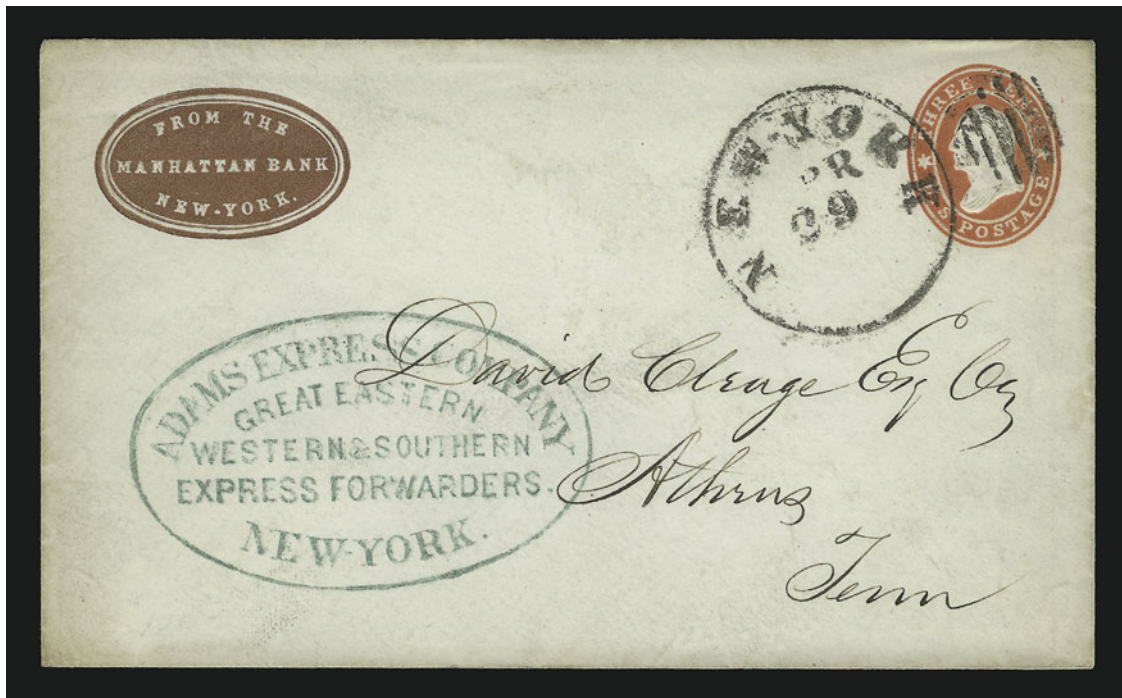 FROM THE
MANHATTAN BANK
NEW-YORK.
NEW-YORK
PR
29
THREE CENTS
POSTAGE
ADAMS EXPRESS COMPANY
GREAT EASTERN
WESTERN & SOUTHERN
EXPRESS FORWARDERS.
NEW-YORK.
David Cleage Esq
Athens
Tenn